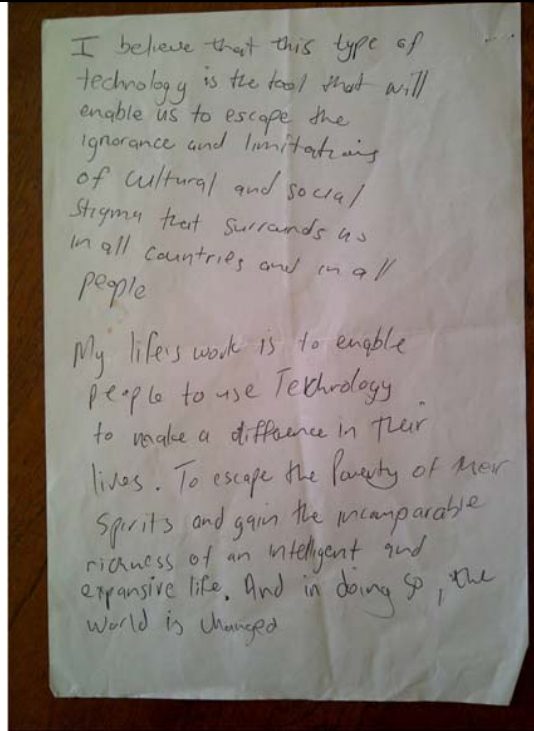 I believe that this type of
technology is the tool that will
enable us to escape the
ignorance and limitations
of cultural and social
stigma that surrounds us
in all countries and in all
people
My life's work is to enable
people to use Technology
to make a difference in their
lives. To escape the Poverty of their
spirits and gain the incomparable
richness of an intelligent and
expansive life. And in doing so, the
world is changed